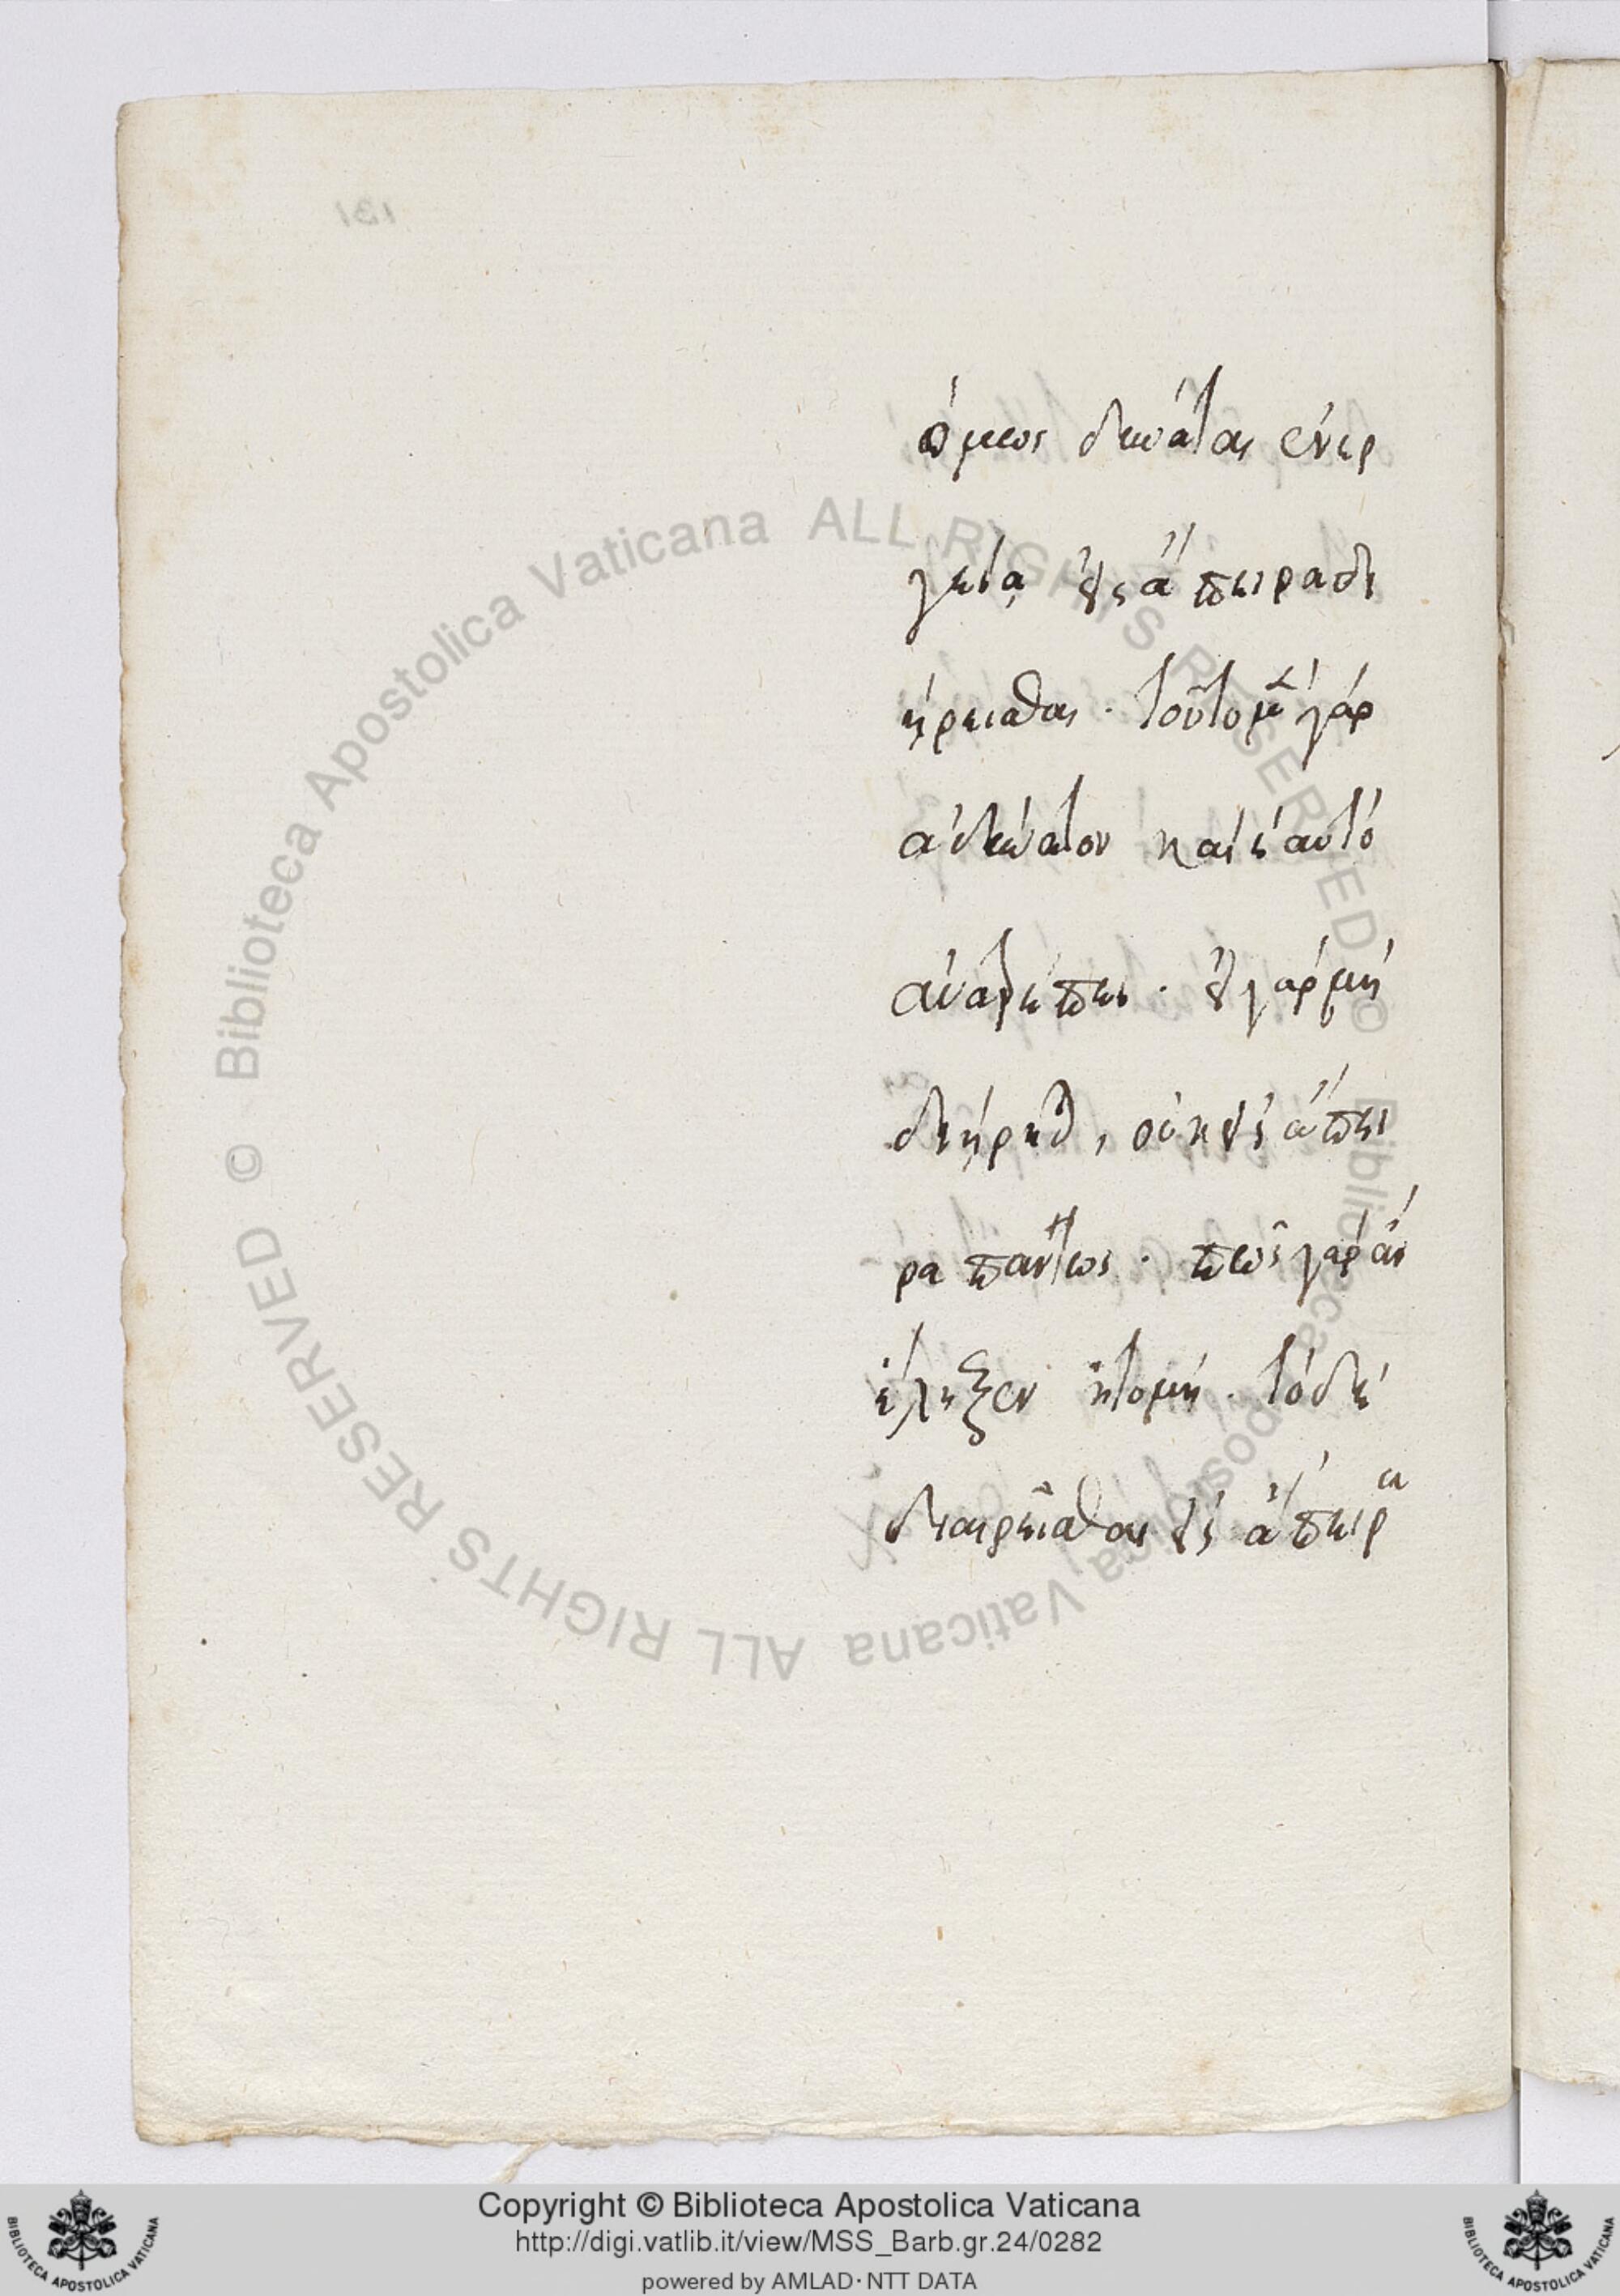 ὅμως δυνατὸν ἐνερ
γείᾳ ἐς ἄπειρα δι
ῃρεῖσθαι. τοῦτο μὲν γὰρ
ἀδύνατον καὶ ἑαυτὸ
ἀνατρέπει. εἰ γὰρ μὴ
διῄρηται, οὐκ ἐς ἄπει
ρα πάντως. πῶς γὰρ ἂν
ἔληξεν ἡ τομή. τὸ δὲ
διαιρεῖσθαι ἐς ἄπειρα
131
© Biblioteca Apostolica Vaticana ALL RIGHTS RESERVED © Biblioteca Apostolica Vaticana ALL RIGHTS RESERVED
Copyright © Biblioteca Apostolica Vaticana
http://digi.vatlib.it/view/MSS_Barb.gr.24/0282
powered by AMLAD·NTT DATA
BIBLIOTECA APOSTOLICA VATICANA
BIBLIOTECA APOSTOLICA VATICANA